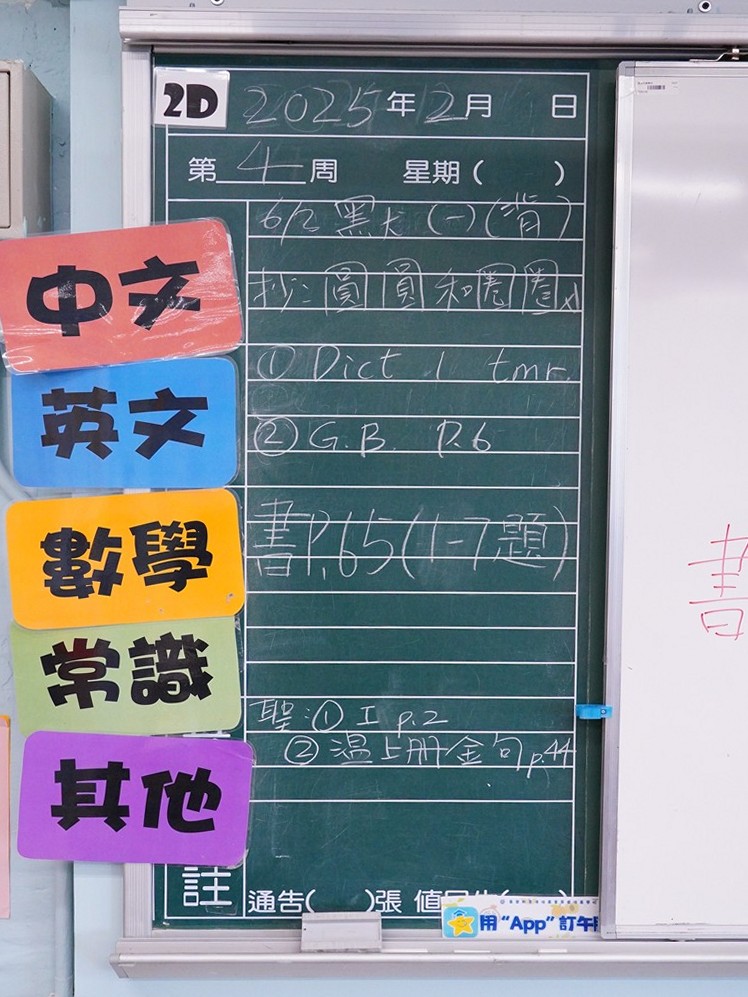 2D 2025年2月 日
第4周 星期( )
中文
6/2 黑大(一)(背)
抄:圓圓和圈圈x1
英文
① Dict 1 tmr.
② G.B. P.6
數學
書P.65(1-7題)
常識
其他
聖:① I p.2
② 温上册金句p.44
註 通告( )張
用“App”訂午
書